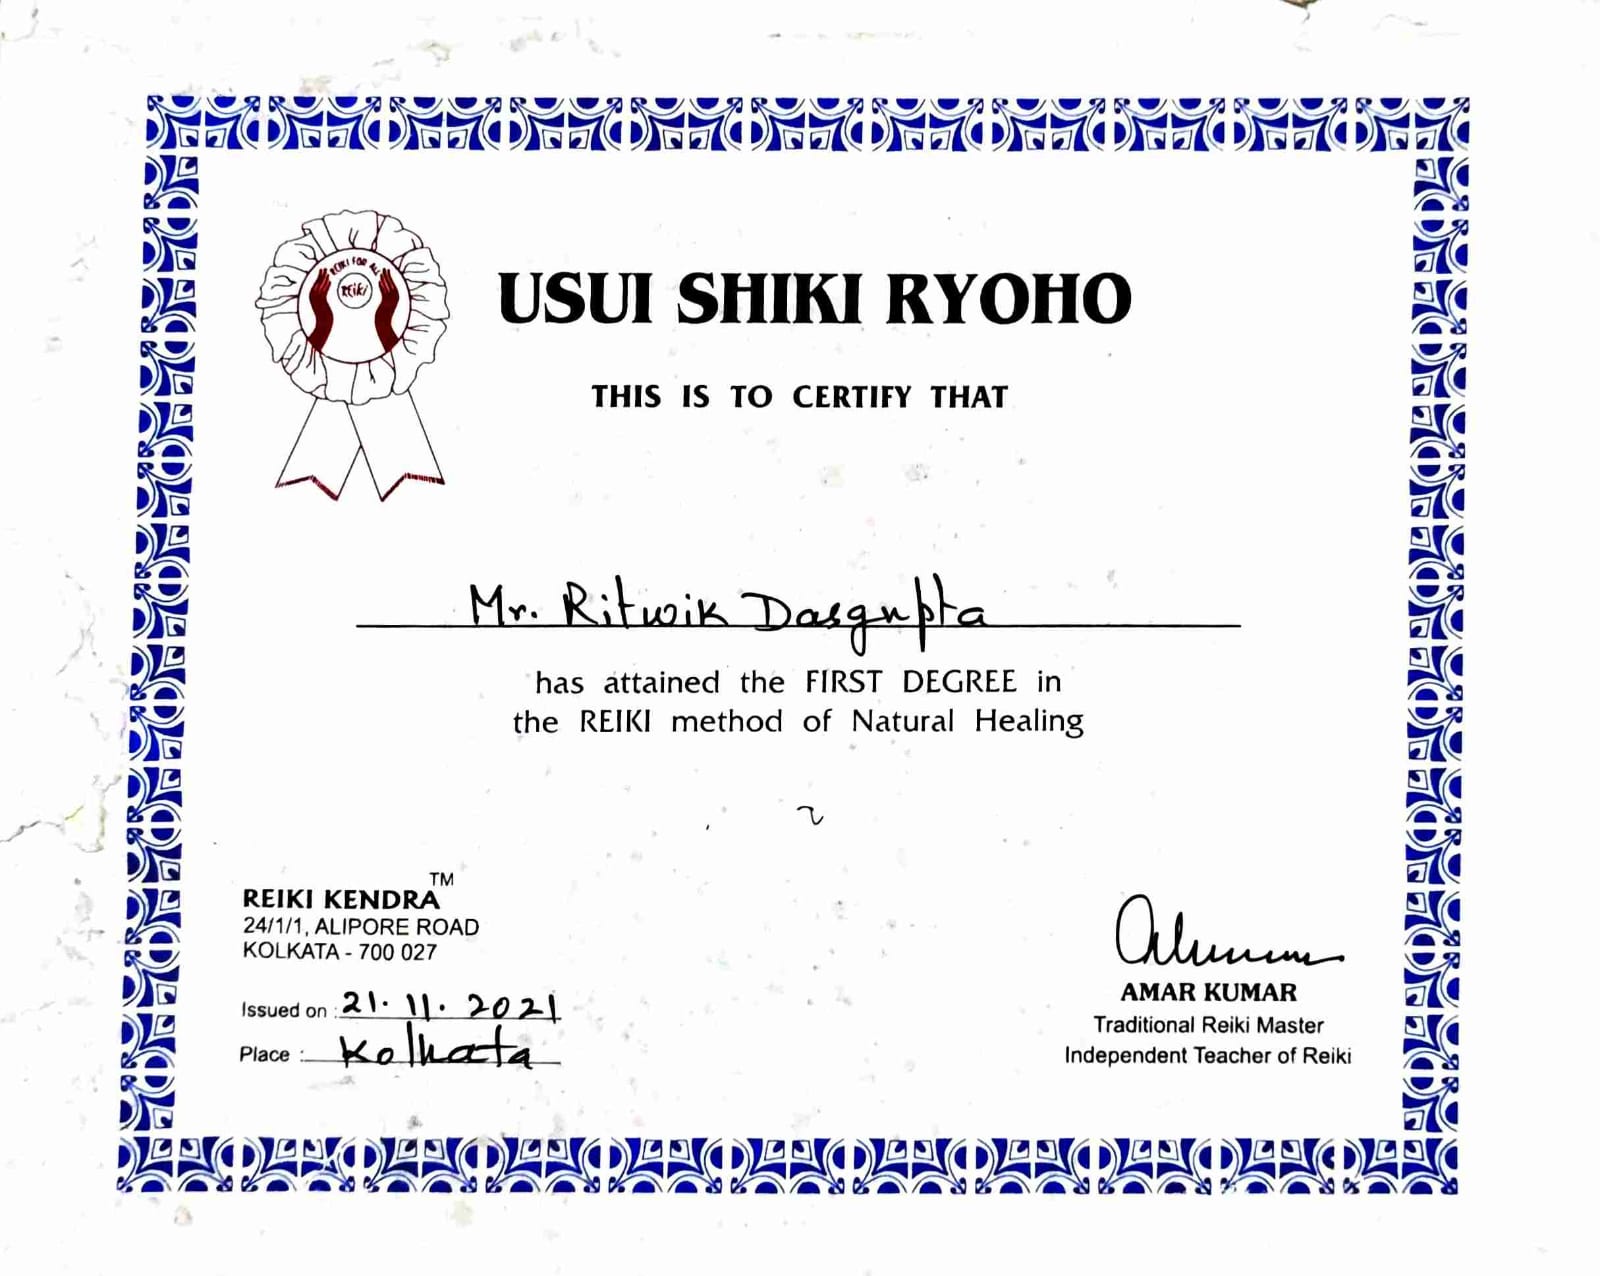 REIKI FOR ALL
REIKI
USUI SHIKI RYOHO
THIS IS TO CERTIFY THAT
Mr. Ritwik Dasgupta
has attained the FIRST DEGREE in
the REIKI method of Natural Healing
REIKI KENDRA™
24/1/1, ALIPORE ROAD
KOLKATA - 700 027
Issued on : 21. 11. 2021
Place : Kolkata
AMAR KUMAR
Traditional Reiki Master
Independent Teacher of Reiki